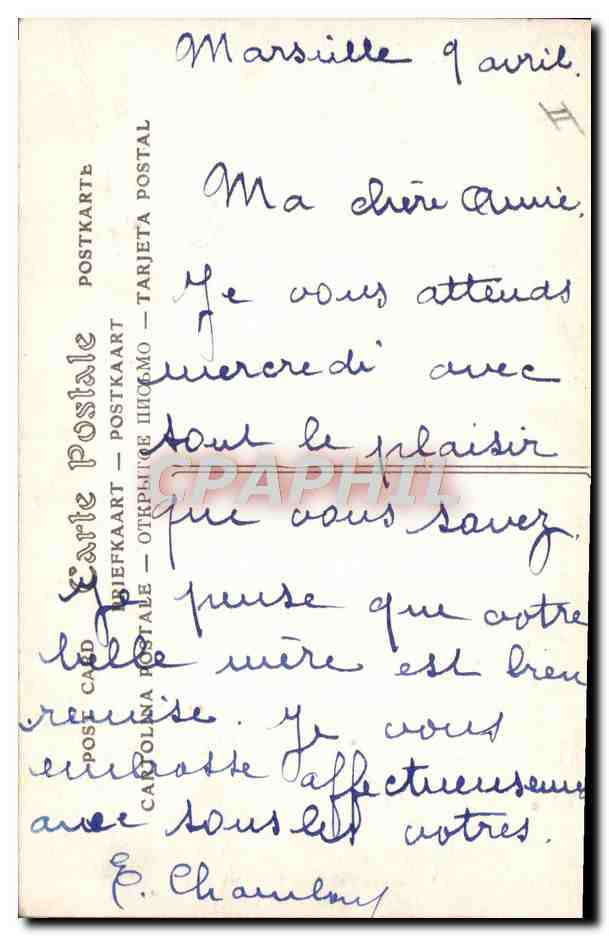 Marseille 9 avril.
II
Ma chère Annie,
Je vous attends
mercredi avec
tout le plaisir
que vous savez.
Je pense que votre
belle mère est bien
remise. Je vous
embrasse affectueusement
avec tous les vôtres.
E.
POST CARD Carte Postale POSTKARTE
BRIEFKAART — POSTKAART
CARTOLINA POSTALE — ОТКРЫТОЕ ПИСЬМО — TARJETA POSTAL
CPAPHIL